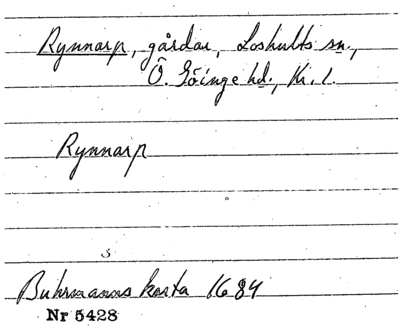 Rynnarp, gårdar, Loshults sn.,
Ö. Göinge hd., Kr. l.
Rynnarp
Buhrmanns karta 1684
Nr 5428